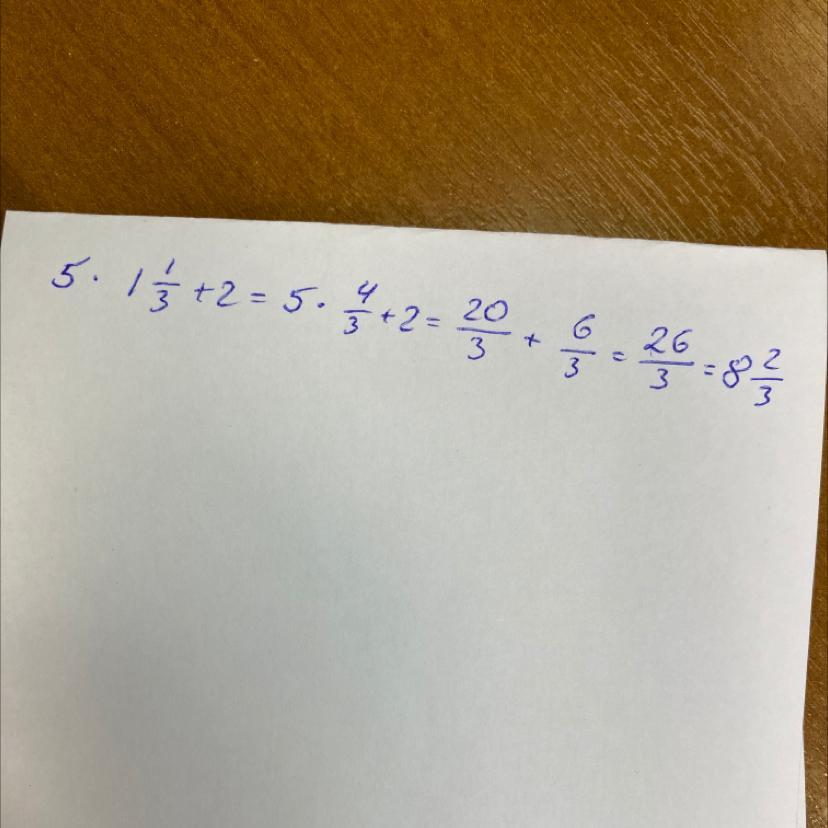 5 · 1 1/3 + 2 = 5 · 4/3 + 2 = 20/3 + 6/3 = 26/3 = 8 2/3